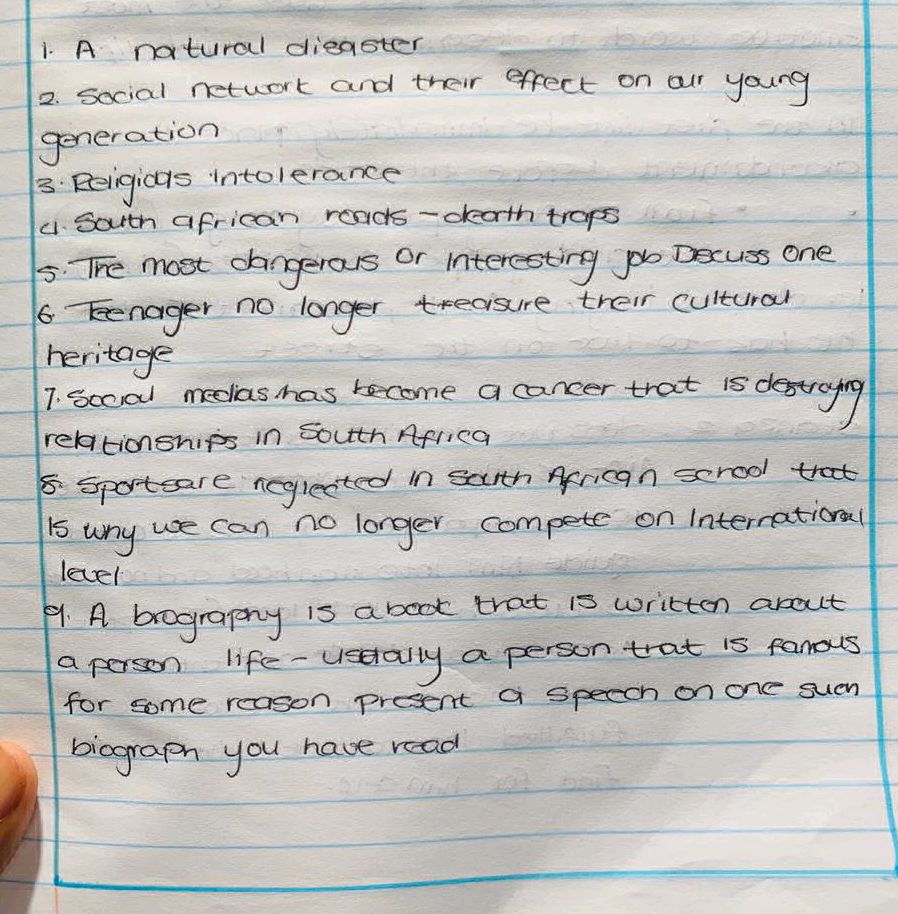 1. A natural diegster
2. Social network and their effect on our young
generation
3. Religious intolerance
4. South african roads - death traps
5. The most dangerous or interesting job Discuss one
6. Teenager no longer treasure their cultural
heritage
7. Social medias has become a cancer that is destroying
relationships in South Africa
8. Sports are neglected in South African school that
is why we can no longer compete on International
level
9. A biography is a book that is written about
a person life - usually a person that is famous
for some reason present a speech on one such
biograph you have read